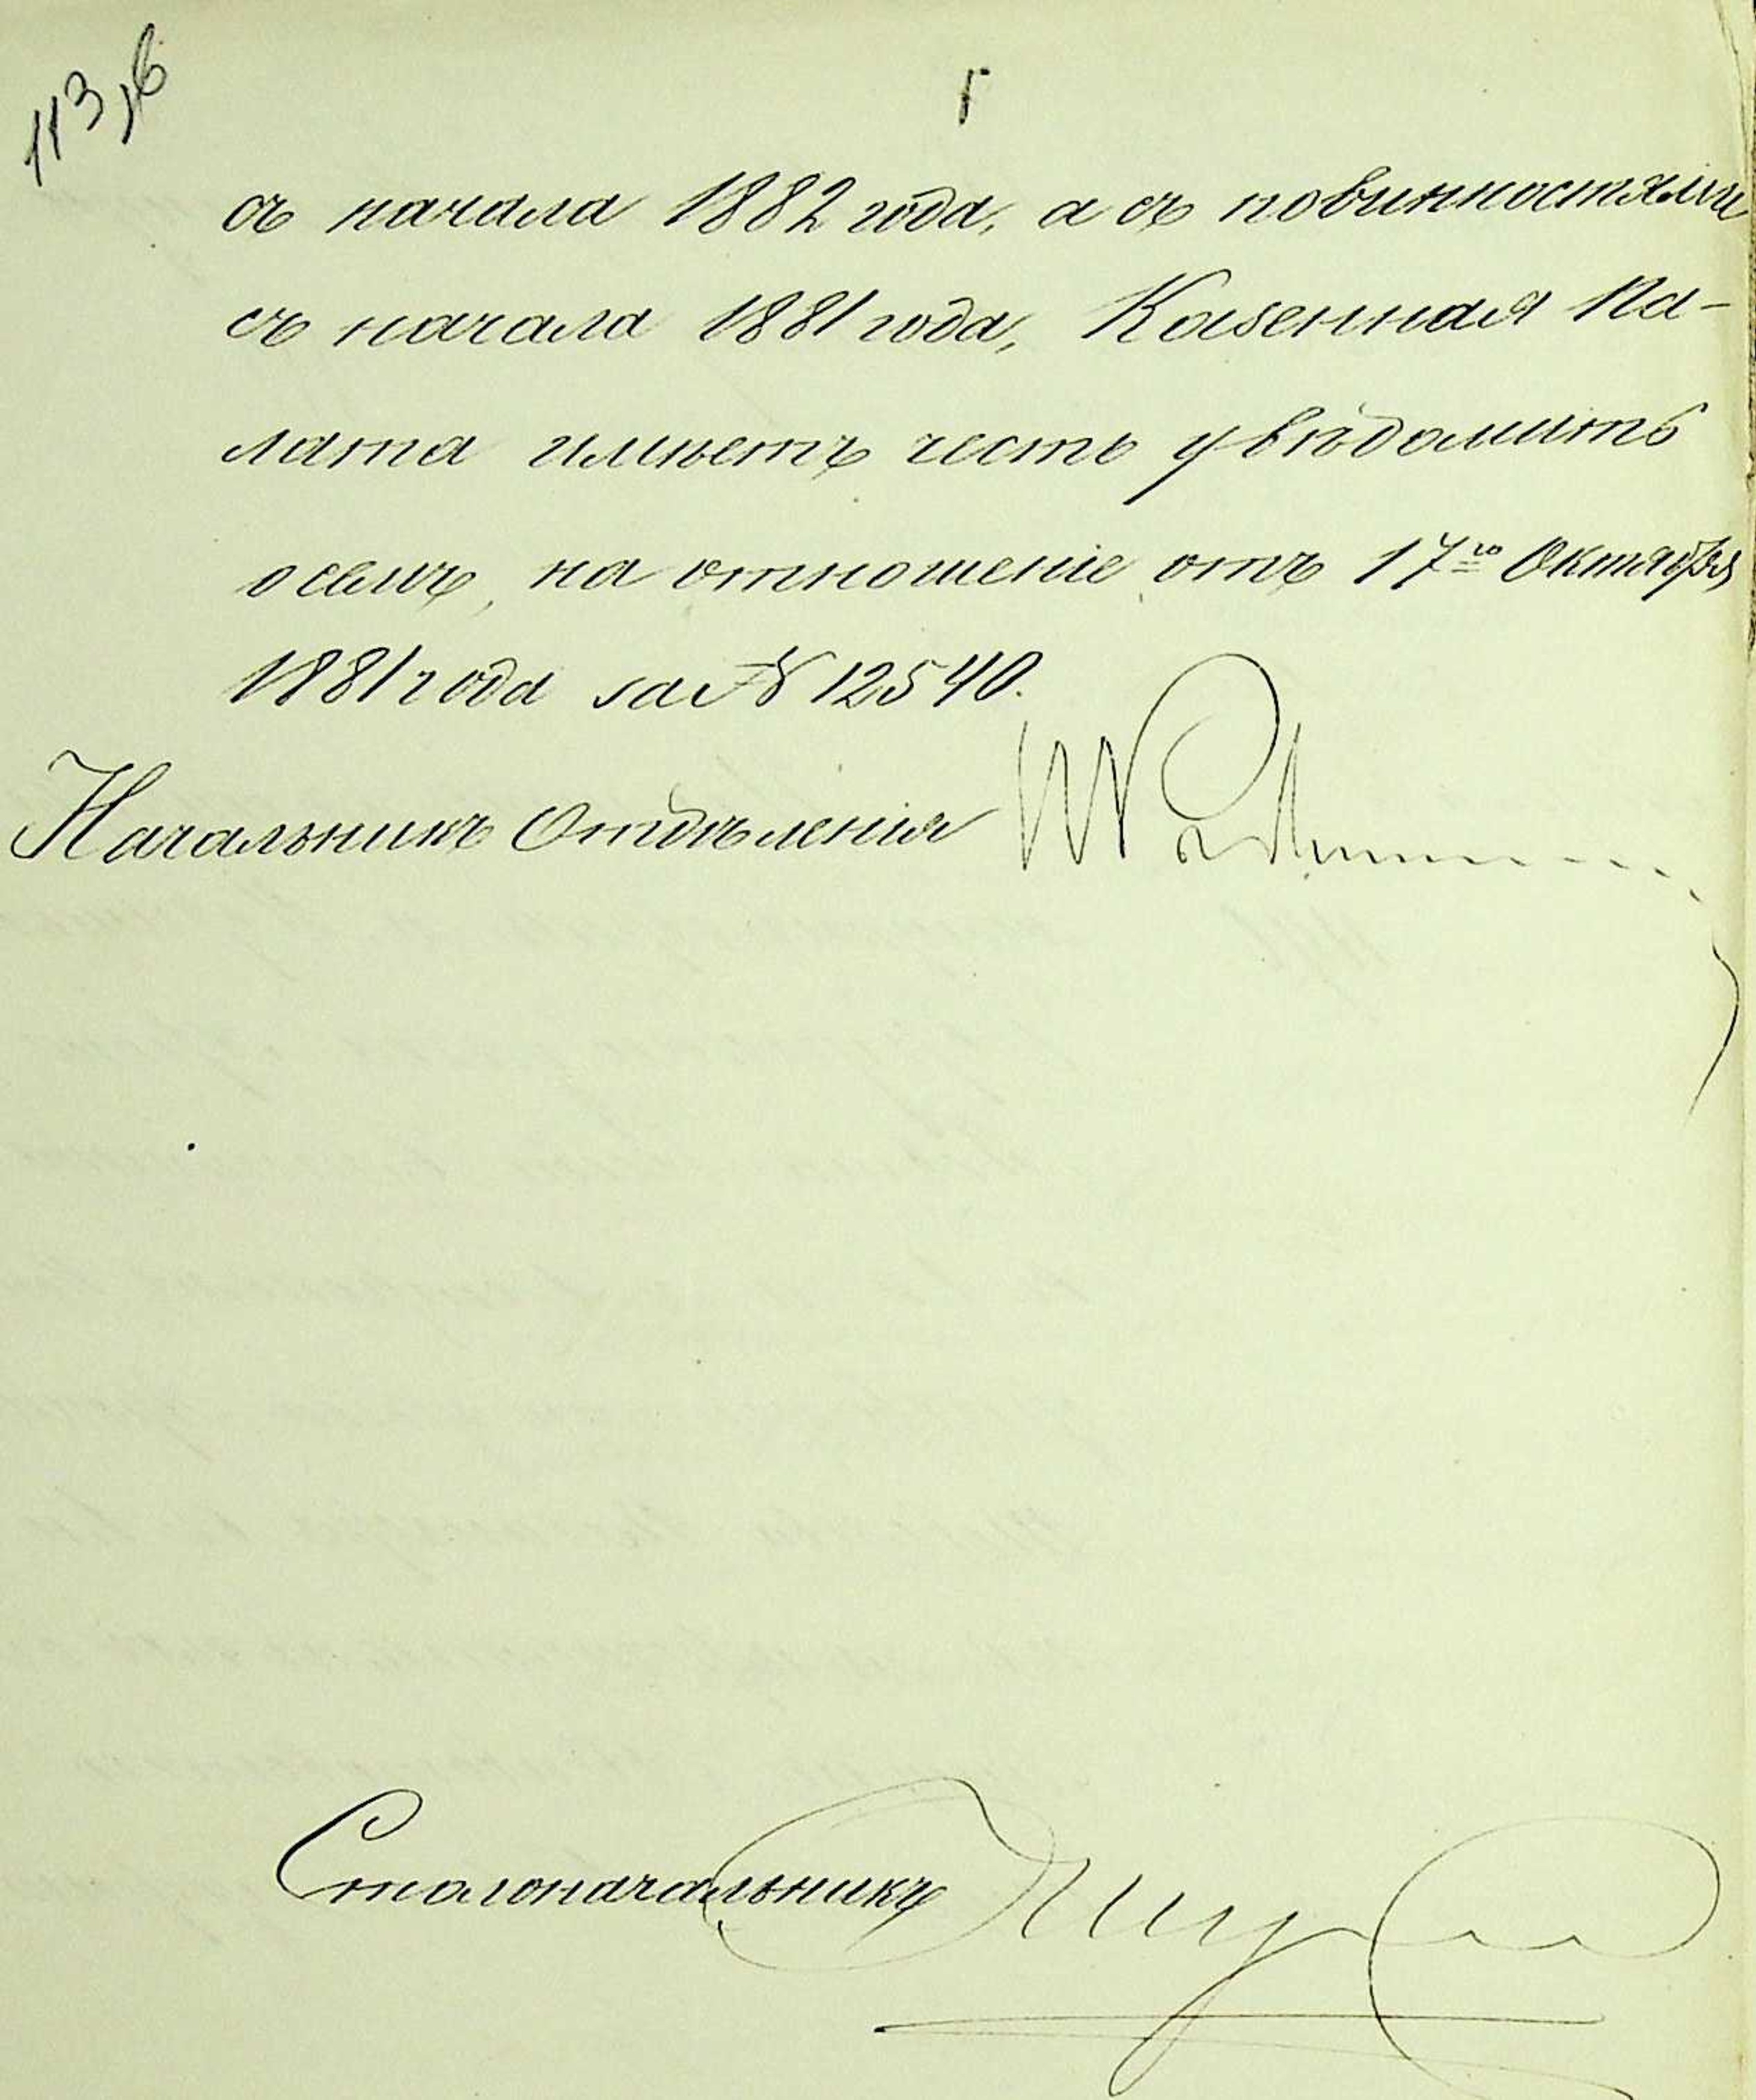 113, б
съ начала 1882 года, а съ повинностями
съ начала 1881 года, Казенная Па-
лата имѣетъ честь увѣдомить
о семъ, на отношеніе отъ 17го Октября
1881 года за № 12540.
Начальникъ Отдѣленія
Столоначальникъ